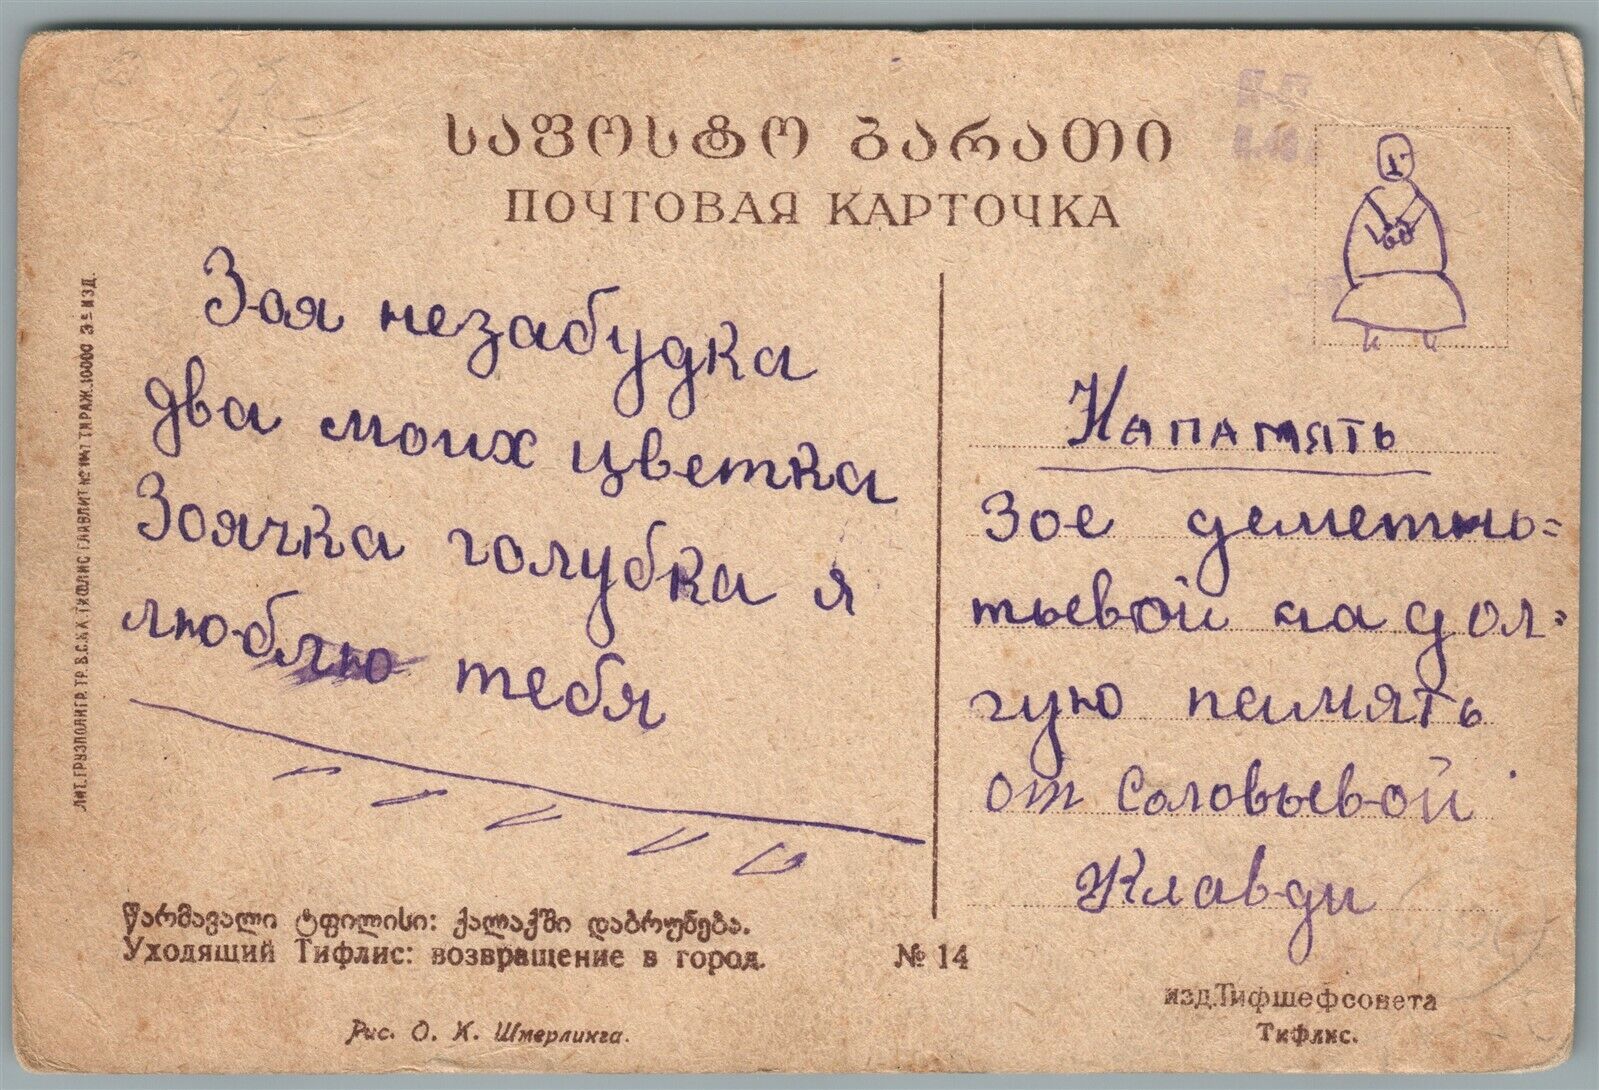 საფოსტო ბარათი
ПОЧТОВАЯ КАРТОЧКА
Зоя незабудка
два моих цветка
Зоячка голубка я
люблю тебя
На память
Зое деметь=
тьевой на дол=
гую память
от Соловьевой
Клавди
წარმავალი ტფილისი: ქალაქში დაბრუნება.
Уходящий Тифлис: возвращение в город.
№ 14
Рис. О. К. Шмерлинга.
изд.Тифшефсовета
Тифлис.
ЛИТ. ГРУЗПОЛИГР. ТР. В.С.Н.Х. ТИФЛИС ГЛАВЛИТ ТИРАЖ. 10000 3е ИЗД.